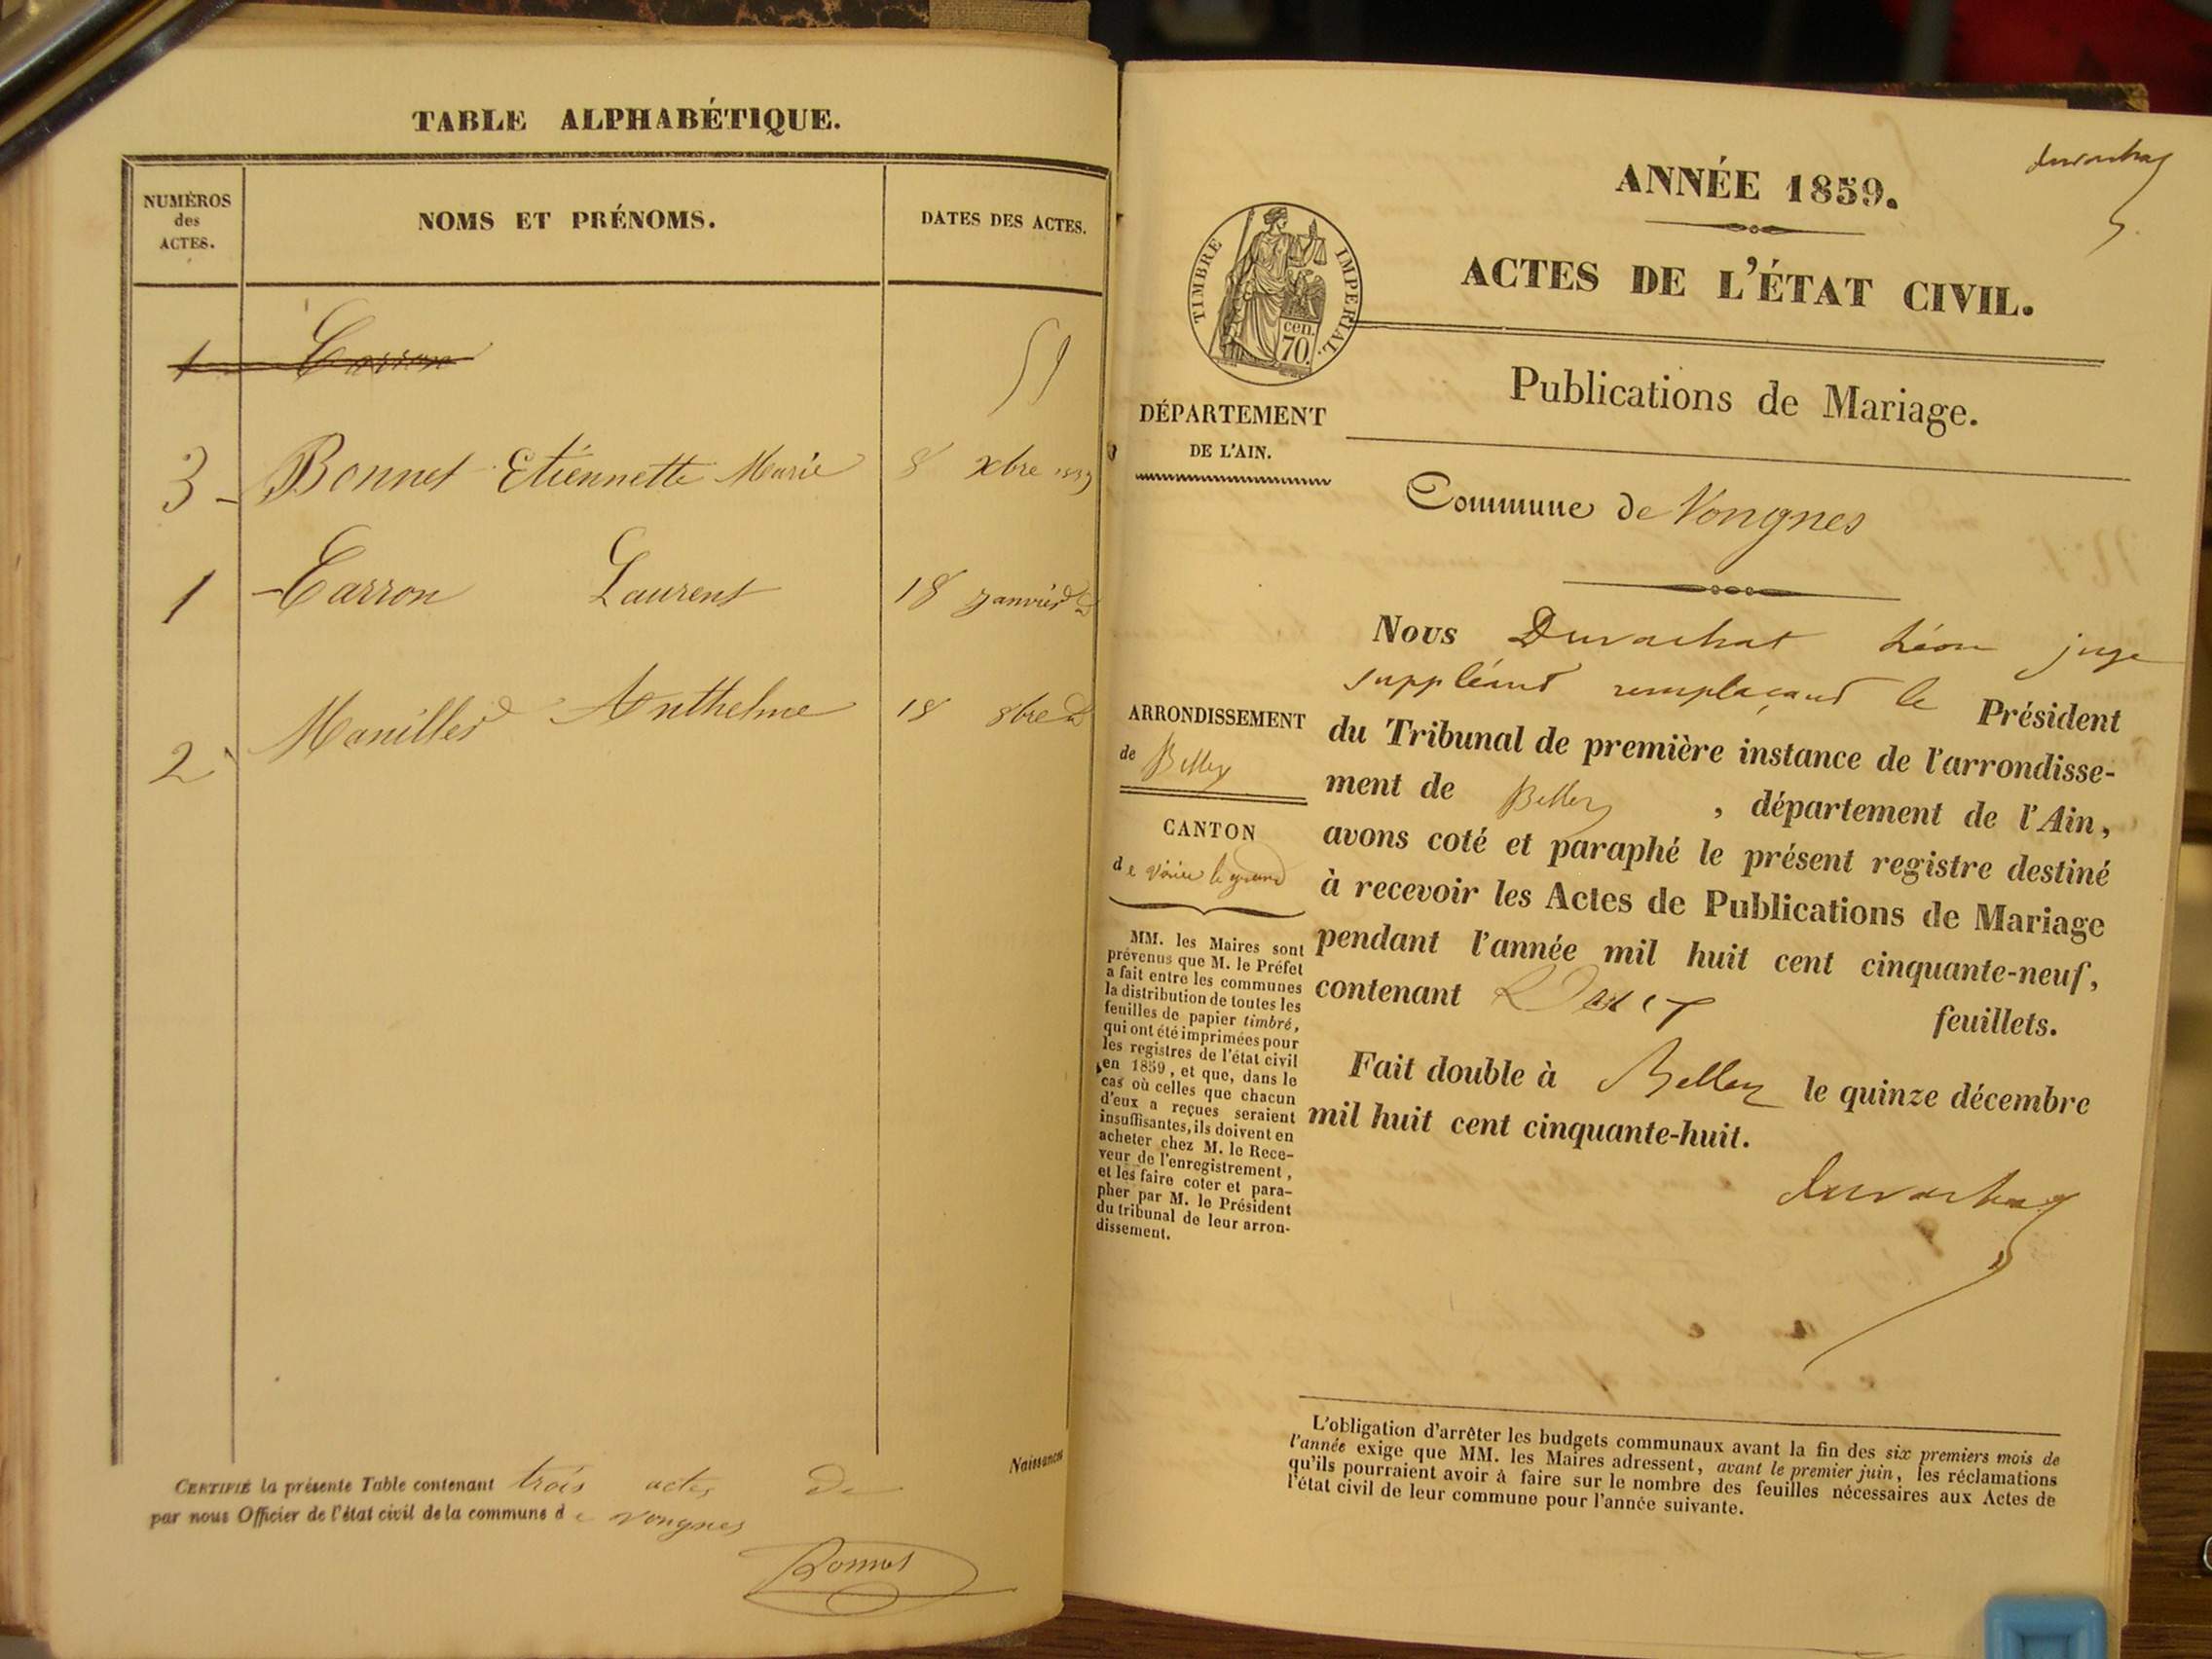 TABLE ALPHABÉTIQUE.
NUMÉROS
des
ACTES.
NOMS ET PRÉNOMS.
DATES DES ACTES.
1 Carron
59
3 - Bonnet Etiennette Marie 8 xbre 1859
1 - Carron Laurent 18 Janvier do
2 Manillier Anthelme 18 8bre do
Naissances
CERTIFIÉ la présente Table contenant trois actes de
par nous Officier de l'état civil de la commune de vongnes
Bonnet
duvachat
ANNÉE 1859.
TIMBRE IMPÉRIAL.
cen.
70.
ACTES DE L'ÉTAT CIVIL.
Publications de Mariage.
DÉPARTEMENT
DE L'AIN.
Commune de Vongnes
ARRONDISSEMENT
de Belley
CANTON
de virieu le grand
MM. les Maires sont
prévenus que M. le Préfet
a fait entre les communes
la distribution de toutes les
feuilles de papier timbré,
qui ont été imprimées pour
les registres de l'état civil
en 1859, et que, dans le
cas où celles que chacun
d'eux a reçues seraient
insuffisantes, ils doivent en
acheter chez M. le Rece-
veur de l'enregistrement,
et les faire coter et para-
pher par M. le Président
du tribunal de leur arron-
dissement.
Nous Duvachat Léon juge
suppléant remplaçant le Président
du Tribunal de première instance de l'arrondisse-
ment de Belley, département de l'Ain,
avons coté et paraphé le présent registre destiné
à recevoir les Actes de Publications de Mariage
pendant l'année mil huit cent cinquante-neuf,
contenant Deux feuillets.
Fait double à Belley le quinze décembre
mil huit cent cinquante-huit.
duvachat
L'obligation d'arrêter les budgets communaux avant la fin des six premiers mois de
l'année exige que MM. les Maires adressent, avant le premier juin, les réclamations
qu'ils pourraient avoir à faire sur le nombre des feuilles nécessaires aux Actes de
l'état civil de leur commune pour l'année suivante.